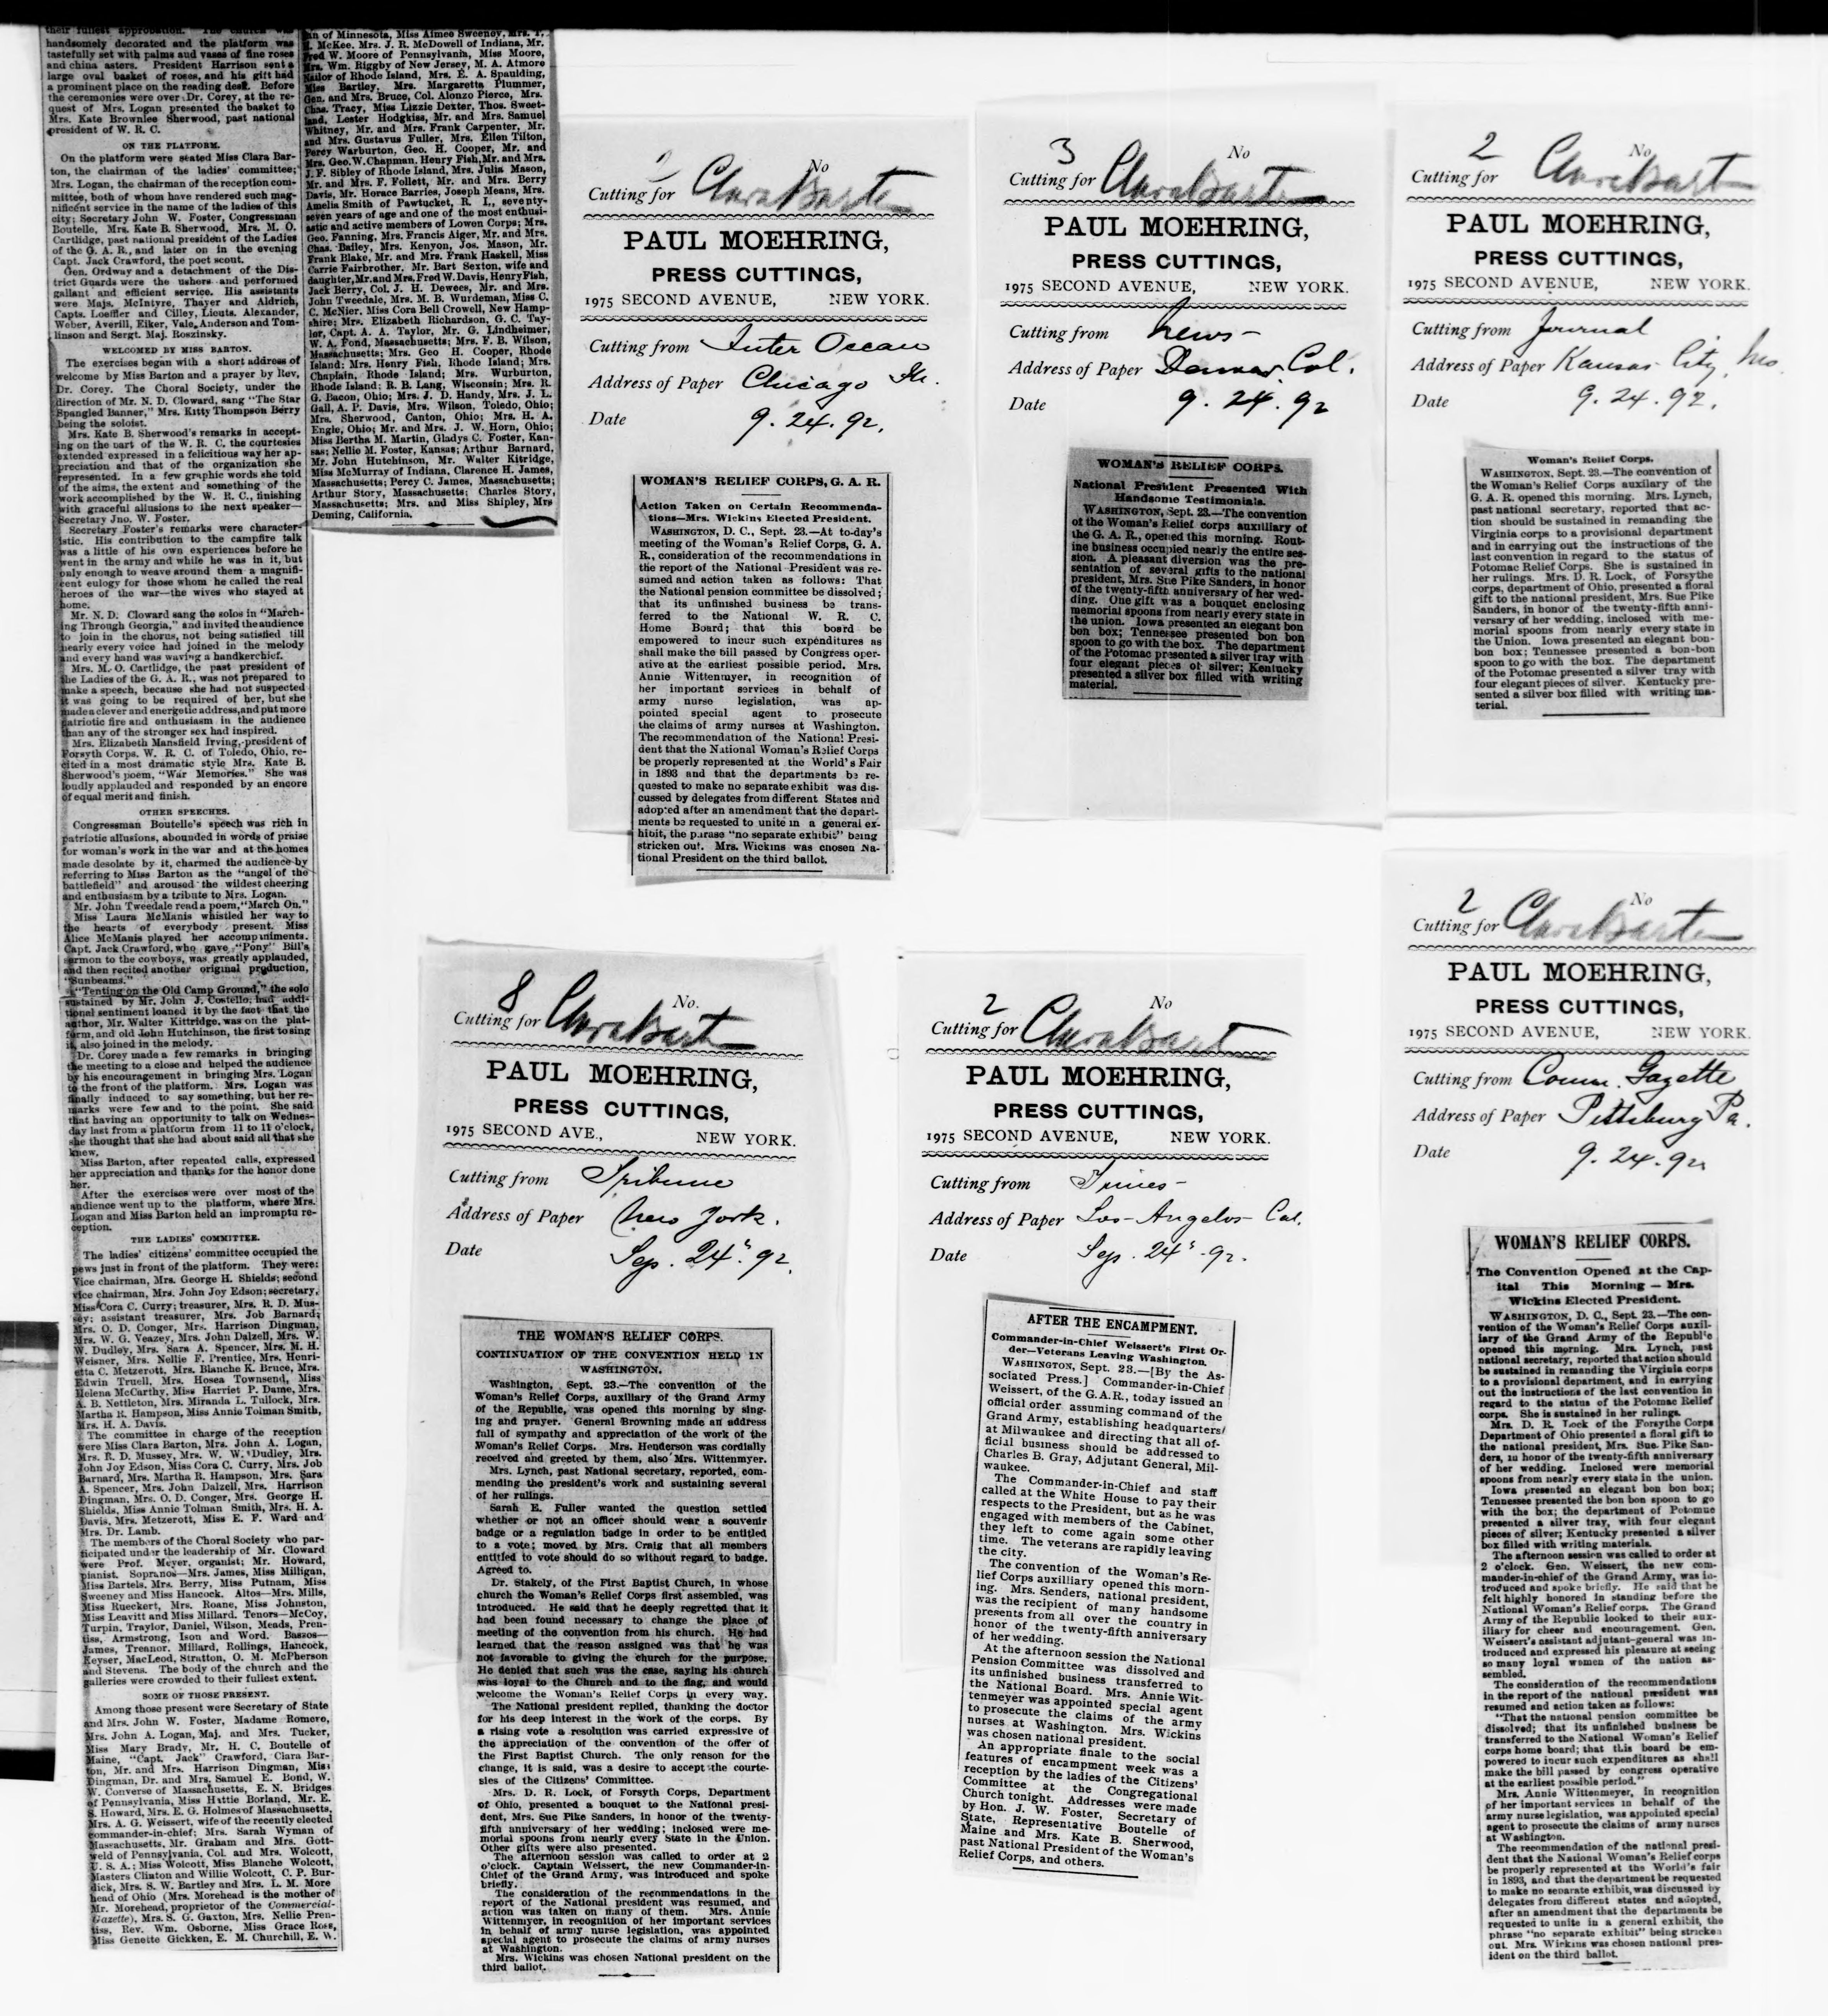 their fullest approbation. The church was
handsomely decorated and the platform was
tastefully set with palms and vases of fine roses
and china asters. President Harrison sent a
large oval basket of roses, and his gift had
a prominent place on the reading desk. Before
the ceremonies were over Dr. Corey, at the re-
quest of Mrs. Logan presented the basket to
Mrs. Kate Brownlee Sherwood, past national
president of W. R. C.
ON THE PLATFORM.
On the platform were seated Miss Clara Bar-
ton, the chairman of the ladies' committee;
Mrs. Logan, the chairman of the reception com-
mittee, both of whom have rendered such mag-
nificent service in the name of the ladies of this
city; Secretary John W. Foster, Congressman
Boutelle, Mrs. Kate B. Sherwood, Mrs. M. O.
Cartlidge, past national president of the Ladies
of the G. A. R., and later on in the evening
Capt. Jack Crawford, the poet scout.
Gen. Ordway and a detachment of the Dis-
trict Guards were the ushers and performed
gallant and efficient service. His assistants
were Majs. McIntyre, Thayer and Aldrich,
Capts. Loeffler and Cilley, Lieuts. Alexander,
Weber, Averill, Eiker, Vale, Anderson and Tom-
linson and Sergt. Maj. Roszinsky.
WELCOMED BY MISS BARTON.
The exercises began with a short address of
welcome by Miss Barton and a prayer by Rev.
Dr. Corey. The Choral Society, under the
direction of Mr. N. D. Cloward, sang "The Star
Spangled Banner," Mrs. Kitty Thompson Berry
being the soloist.
Mrs. Kate B. Sherwood's remarks in accept-
ing on the part of the W. R. C. the courtesies
extended expressed in a felicitous way her ap-
preciation and that of the organization she
represented. In a few graphic words she told
of the aims, the extent and something of the
work accomplished by the W. R. C., finishing
with graceful allusions to the next speaker—
Secretary Jno. W. Foster.
Secretary Foster's remarks were character-
istic. His contribution to the campfire talk
was a little of his own experiences before he
went in the army and while he was in it, but
only enough to weave around them a magnifi-
cent eulogy for those whom he called the real
heroes of the war—the wives who stayed at
home.
Mr. N. D. Cloward sang the solos in "March-
ing Through Georgia," and invited the audience
to join in the chorus, not being satisfied till
nearly every voice had joined in the melody
and every hand was waving a handkerchief.
Mrs. M. O. Cartlidge, the past president of
the Ladies of the G. A. R., was not prepared to
make a speech, because she had not suspected
it was going to be required of her, but she
made a clever and energetic address, and put more
patriotic fire and enthusiasm in the audience
than any of the stronger sex had inspired.
Mrs. Elizabeth Mansfield Irving, president of
Forsyth Corps, W. R. C. of Toledo, Ohio, re-
cited in a most dramatic style Mrs. Kate B.
Sherwood's poem, "War Memories." She was
loudly applauded and responded by an encore
of equal merit and finish.
OTHER SPEECHES.
Congressman Boutelle's speech was rich in
patriotic allusions, abounded in words of praise
for woman's work in the war and at the homes
made desolate by it, charmed the audience by
referring to Miss Barton as the "angel of the
battlefield" and aroused the wildest cheering
and enthusiasm by a tribute to Mrs. Logan.
Mr. John Tweedale read a poem, "March On."
Miss Laura McManis whistled her way to
the hearts of everybody present. Miss
Alice McManis played her accompaniments.
Capt. Jack Crawford, who gave "Pony" Bill's
sermon to the cowboys, was greatly applauded,
and then recited another original production,
"Sunbeams."
"Tenting on the Old Camp Ground," the solo
sustained by Mr. John J. Costello, had addi-
tional sentiment loaned it by the fact that the
author, Mr. Walter Kittridge, was on the plat-
form, and old John Hutchinson, the first to sing
it, also joined in the melody.
Dr. Corey made a few remarks in bringing
the meeting to a close and helped the audience
by his encouragement in bringing Mrs. Logan
to the front of the platform. Mrs. Logan was
finally induced to say something, but her re-
marks were few and to the point. She said
that having an opportunity to talk on Wednes-
day last from a platform from 11 to 11 o'clock,
she thought that she had about said all that she
knew.
Miss Barton, after repeated calls, expressed
her appreciation and thanks for the honor done
her.
After the exercises were over most of the
audience went up to the platform, where Mrs.
Logan and Miss Barton held an impromptu re-
ception.
THE LADIES' COMMITTEE.
The ladies' citizens' committee occupied the
pews just in front of the platform. They were:
Vice chairman, Mrs. George H. Shields; second
vice chairman, Mrs. John Joy Edson; secretary,
Miss Cora C. Curry; treasurer, Mrs. R. D. Mus-
sey; assistant treasurer, Mrs. Job Barnard;
Mrs. O. D. Conger, Mrs. Harrison Dingman,
Mrs. W. G. Veazey, Mrs. John Dalzell, Mrs. W.
W. Dudley, Mrs. Sara A. Spencer, Mrs. M. H.
Weisner, Mrs. Nellie F. Prentice, Mrs. Henri-
etta C. Metzerott, Mrs. Blanche K. Bruce, Mrs.
Edwin Truell, Mrs. Hosea Townsend, Miss
Helena McCarthy, Miss Harriet P. Dame, Mrs.
A. B. Nettleton, Mrs. Miranda L. Tullock, Mrs.
Martha R. Hampson, Miss Annie Tolman Smith,
Mrs. H. A. Davis.
The committee in charge of the reception
were Miss Clara Barton, Mrs. John A. Logan,
Mrs. R. D. Mussey, Mrs. W. W. Dudley, Mrs.
John Joy Edson, Miss Cora C. Curry, Mrs. Job
Barnard, Mrs. Martha R. Hampson, Mrs. Sara
A. Spencer, Mrs. John Dalzell, Mrs. Harrison
Dingman, Mrs. O. D. Conger, Mrs. George H.
Shields, Miss Annie Tolman Smith, Mrs. H. A.
Davis, Mrs. Metzerott, Miss E. F. Ward and
Mrs. Dr. Lamb.
The members of the Choral Society who par-
ticipated under the leadership of Mr. Cloward
were Prof. Meyer, organist; Mr. Howard,
pianist. Sopranos—Mrs. James, Miss Milligan,
Miss Bartels, Mrs. Berry, Miss Putnam, Miss
Sweeney and Miss Hancock. Altos—Mrs. Mills,
Miss Rueckert, Mrs. Roane, Miss Johnston,
Miss Leavitt and Miss Millard. Tenors—McCoy,
Turpin, Traylor, Daniel, Wilson, Meads, Pren-
tiss, Armstrong, Ison and Word. Bassos—
James, Treanor, Millard, Rollings, Hancock,
Keyser, MacLeod, Stratton, O. M. McPherson
and Stevens. The body of the church and the
galleries were crowded to their fullest extent.
SOME OF THOSE PRESENT.
Among those present were Secretary of State
and Mrs. John W. Foster, Madame Romero,
Mrs. John A. Logan, Maj. and Mrs. Tucker,
Miss Mary Brady, Mr. H. C. Boutelle of
Maine, "Capt. Jack" Crawford, Clara Bar-
ton, Mr. and Mrs. Harrison Dingman, Miss
Dingman, Dr. and Mrs. Samuel E. Bond, W.
W. Converse of Massachusetts, E. N. Bridges
of Pennsylvania, Miss Hattie Borland, Mr. E.
S. Howard, Mrs. E. G. Holmes of Massachusetts,
Mrs. A. G. Weissert, wife of the recently elected
commander-in-chief; Mrs. Sarah Wyman of
Massachusetts, Mr. Graham and Mrs. Gott-
weld of Pennsylvania, Col. and Mrs. Wolcott,
U. S. A.; Miss Wolcott, Miss Blanche Wolcott,
Masters Clinton and Willie Wolcott, C. P. Bur-
dick, Mrs. S. W. Bartley and Mrs. L. M. More
head of Ohio (Mrs. Morehead is the mother of
Mr. Morehead, proprietor of the Commercial-
Gazette), Mrs. S. G. Gaxton, Mrs. Nellie Pren-
tiss, Rev. Wm. Osborne, Miss Grace Ross,
Miss Genette Gickken, E. M. Churchill, E. W.
nn of Minnesota, Miss Aimee Sweeney, Mrs. T.
McKee, Mrs. J. R. McDowell of Indiana, Mr.
Fred W. Moore of Pennsylvania, Miss Moore,
Mrs. Wm. Riggby of New Jersey, M. A. Atmore
Nailor of Rhode Island, Mrs. E. A. Spaulding,
Miss Bartley, Mrs. Margaretta Plummer,
Gen. and Mrs. Bruce, Col. Alonzo Pierce, Mrs.
Chas. Tracy, Miss Lizzie Dexter, Thos. Sweet-
land, Lester Hodgkiss, Mr. and Mrs. Samuel
Whitney, Mr. and Mrs. Frank Carpenter, Mr.
and Mrs. Gustavus Fuller, Mrs. Ellen Tilton,
Percy Warburton, Geo. H. Cooper, Mr. and
Mrs. Geo. W. Chapman, Henry Fish, Mr. and Mrs.
J. F. Sibley of Rhode Island, Mrs. Julia Mason,
Mr. and Mrs. F. Follett, Mr. and Mrs. Berry
Davis, Mr. Horace Barries, Joseph Means, Mrs.
Amelia Smith of Pawtucket, R. I., seventy-
seven years of age and one of the most enthusi-
astic and active members of Lowen Corps; Mrs.
Geo. Fanning, Mrs. Francis Aiger, Mr. and Mrs.
Chas. Bailey, Mrs. Kenyon, Jos. Mason, Mr.
Frank Blake, Mr. and Mrs. Frank Haskell, Miss
Carrie Fairbrother, Mr. Bart Sexton, wife and
daughter, Mr. and Mrs. Fred W. Davis, Henry Fish,
Jack Berry, Col. J. H. Dewees, Mr. and Mrs.
John Tweedale, Mrs. M. B. Wurdeman, Miss C.
C. McNier, Miss Cora Bell Crowell, New Hamp-
shire; Mrs. Elizabeth Richardson, G. C. Tay-
lor, Capt. A. A. Taylor, Mr. G. Lindheimer,
W. A. Pond, Massachusetts; Mrs. F. B. Wilson,
Massachusetts; Mrs. Geo H. Cooper, Rhode
Island; Mrs. Henry Fish, Rhode Island; Mrs.
Chaplain, Rhode Island; Mrs. Wurburton,
Rhode Island; R. B. Lang, Wisconsin; Mrs. R.
G. Bacon, Ohio; Mrs. J. D. Handy, Mrs. J. L.
Gall, A. P. Davis, Mrs. Wilson, Toledo, Ohio;
Mrs. Sherwood, Canton, Ohio; Mrs. H. A.
Engle, Ohio; Mr. and Mrs. J. W. Horn, Ohio;
Miss Bertha M. Martin, Gladys C. Foster, Kan-
sas; Nellie M. Foster, Kansas; Arthur Barnard,
Mr. John Hutchinson, Mr. Walter Kitridge,
Miss McMurray of Indiana, Clarence H. James,
Massachusetts; Percy C. James, Massachusetts;
Arthur Story, Massachusetts; Charles Story,
Massachusetts; Mrs. and Miss Shipley, Mrs
Deming, California.
No
Cutting for Clara Barton
PAUL MOEHRING,
PRESS CUTTINGS,
1975 SECOND AVENUE, NEW YORK.
Cutting from Inter Ocean
Address of Paper Chicago Ill.
Date 9. 24. 92.
WOMAN'S RELIEF CORPS, G. A. R.
Action Taken on Certain Recommenda-
tions—Mrs. Wickins Elected President.
WASHINGTON, D. C., Sept. 23.—At to-day's
meeting of the Woman's Relief Corps, G. A.
R., consideration of the recommendations in
the report of the National President was re-
sumed and action taken as follows: That
the National pension committee be dissolved;
that its unfinished business be trans-
ferred to the National W. R. C.
Home Board; that this board be
empowered to incur such expenditures as
shall make the bill passed by Congress oper-
ative at the earliest possible period. Mrs.
Annie Wittenmyer, in recognition of
her important services in behalf of
army nurse legislation, was ap-
pointed special agent to prosecute
the claims of army nurses at Washington.
The recommendation of the National Presi-
dent that the National Woman's Relief Corps
be properly represented at the World's Fair
in 1893 and that the departments be re-
quested to make no separate exhibit was dis-
cussed by delegates from different States and
adopted after an amendment that the depart-
ments be requested to unite in a general ex-
hibit, the pnrase "no separate exhibit" being
stricken out. Mrs. Wickins was chosen Na-
tional President on the third ballot.
3 No
Cutting for Clara Barton
PAUL MOEHRING,
PRESS CUTTINGS,
1975 SECOND AVENUE, NEW YORK.
Cutting from News—
Address of Paper Denver. Col.
Date 9. 24. 92
WOMAN'S RELIEF CORPS.
National President Presented With
Handsome Testimonials.
WASHINGTON, Sept. 23.—The convention
of the Woman's Relief corps auxiliary of
the G. A. R., opened this morning. Rout-
ine business occupied nearly the entire ses-
sion. A pleasant diversion was the pre-
sentation of several gifts to the national
president, Mrs. Sue Pike Sanders, in honor
of the twenty-fifth anniversary of her wed-
ding. One gift was a bouquet enclosing
memorial spoons from nearly every state in
the union. Iowa presented an elegant bon
bon box; Tennessee presented bon bon
spoon to go with the box. The department
of the Potomac presented a silver tray with
four elegant pieces of silver; Kentucky
presented a silver box filled with writing
material.
2 No
Cutting for Clara Bart
PAUL MOEHRING,
PRESS CUTTINGS,
1975 SECOND AVENUE, NEW YORK.
Cutting from Journal
Address of Paper Kansas City, Mo.
Date 9. 24. 92.
Woman's Relief Corps.
WASHINGTON, Sept. 23.—The convention of
the Woman's Relief Corps auxilary of the
G. A. R. opened this morning. Mrs. Lynch,
past national secretary, reported that ac-
tion should be sustained in remanding the
Virginia corps to a provisional department
and in carrying out the instructions of the
last convention in regard to the status of
Potomac Relief Corps. She is sustained in
her rulings. Mrs. D. R. Lock, of Forsythe
corps, department of Ohio, presented a floral
gift to the national president, Mrs. Sue Pike
Sanders, in honor of the twenty-fifth anni-
versary of her wedding, inclosed with me-
morial spoons from nearly every state in
the Union. Iowa presented an elegant bon-
bon box; Tennessee presented a bon-bon
spoon to go with the box. The department
of the Potomac presented a silver tray with
four elegant pieces of silver. Kentucky pre-
sented a silver box filled with writing ma-
terial.
8 No.
Cutting for Clara Bart
PAUL MOEHRING,
PRESS CUTTINGS,
1975 SECOND AVE., NEW YORK.
Cutting from Tribune
Address of Paper New York.
Date Sep. 24. 92.
THE WOMAN'S RELIEF CORPS.
CONTINUATION OF THE CONVENTION HELD IN
WASHINGTON.
Washington, Sept. 23.—The convention of the
Woman's Relief Corps, auxiliary of the Grand Army
of the Republic, was opened this morning by sing-
ing and prayer. General Browning made an address
full of sympathy and appreciation of the work of the
Woman's Relief Corps. Mrs. Henderson was cordially
received and greeted by them, also Mrs. Wittenmyer.
Mrs. Lynch, past National secretary, reported, com-
mending the president's work and sustaining several
of her rulings.
Sarah E. Fuller wanted the question settled
whether or not an officer should wear a souvenir
badge or a regulation badge in order to be entitled
to a vote; moved by Mrs. Craig that all members
entitled to vote should do so without regard to badge.
Agreed to.
Dr. Stakely, of the First Baptist Church, in whose
church the Woman's Relief Corps first assembled, was
introduced. He said that he deeply regretted that it
had been found necessary to change the place of
meeting of the convention from his church. He had
learned that the reason assigned was that he was
not favorable to giving the church for the purpose.
He denied that such was the case, saying his church
was loyal to the Church and to the flag, and would
welcome the Woman's Relief Corps in every way.
The National president replied, thanking the doctor
for his deep interest in the work of the corps. By
a rising vote a resolution was carried expressive of
the appreciation of the convention of the offer of
the First Baptist Church. The only reason for the
change, it is said, was a desire to accept the courte-
sies of the Citizens' Committee.
Mrs. D. R. Lock, of Forsyth Corps, Department
of Ohio, presented a bouquet to the National presi-
dent, Mrs. Sue Pike Sanders, in honor of the twenty-
fifth anniversary of her wedding; inclosed were me-
morial spoons from nearly every State in the Union.
Other gifts were also presented.
The afternoon session was called to order at 2
o'clock. Captain Weissert, the new Commander-in-
Chief of the Grand Army, was introduced and spoke
briefly.
The consideration of the recommendations in the
report of the National president was resumed, and
action was taken on many of them. Mrs. Annie
Wittenmyer, in recognition of her important services
in behalf of army nurse legislation, was appointed
special agent to prosecute the claims of army nurses
at Washington.
Mrs. Wickins was chosen National president on the
third ballot.
2 No
Cutting for Clara Bart
PAUL MOEHRING,
PRESS CUTTINGS,
1975 SECOND AVENUE, NEW YORK.
Cutting from Times—
Address of Paper Los-Angelos- Cal.
Date Sep. 24. 92.
AFTER THE ENCAMPMENT.
Commander-in-Chief Weissert's First Or-
der—Veterans Leaving Washington.
WASHINGTON, Sept. 23.—[By the As-
sociated Press.] Commander-in-Chief
Weissert, of the G.A.R., today issued an
official order assuming command of the
Grand Army, establishing headquarters
at Milwaukee and directing that all of-
ficial business should be addressed to
Charles B. Gray, Adjutant General, Mil-
waukee.
The Commander-in-Chief and staff
called at the White House to pay their
respects to the President, but as he was
engaged with members of the Cabinet,
they left to come again some other
time. The veterans are rapidly leaving
the city.
The convention of the Woman's Re-
lief Corps auxilliary opened this morn-
ing. Mrs. Senders, national president,
was the recipient of many handsome
presents from all over the country in
honor of the twenty-fifth anniversary
of her wedding.
At the afternoon session the National
Pension Committee was dissolved and
its unfinished business transferred to
the National Board. Mrs. Annie Wit-
tenmeyer was appointed special agent
to prosecute the claims of the army
nurses at Washington. Mrs. Wickins
was chosen national president.
An appropriate finale to the social
features of encampment week was a
reception by the ladies of the Citizens'
Committee at the Congregational
Church tonight. Addresses were made
by Hon. J. W. Foster, Secretary of
State, Representative Boutelle of
Maine and Mrs. Kate B. Sherwood,
past National President of the Woman's
Relief Corps, and others.
2 No
Cutting for Clara Barton
PAUL MOEHRING,
PRESS CUTTINGS,
1975 SECOND AVENUE, NEW YORK.
Cutting from Comm. Gazette
Address of Paper Pittsburg Pa.
Date 9. 24. 92
WOMAN'S RELIEF CORPS.
The Convention Opened at the Cap-
ital This Morning — Mrs.
Wickins Elected President.
WASHINGTON, D. C., Sept. 23.—The con-
vention of the Woman's Relief Corps auxil-
iary of the Grand Army of the Republic
opened this morning. Mrs. Lynch, past
national secretary, reported that action should
be sustained in remanding the Virginia corps
to a provisional department, and in carrying
out the instructions of the last convention in
regard to the status of the Potomac Relief
corps. She is sustained in her rulings.
Mrs. D. R. Lock of the Forsythe Corps
Department of Ohio presented a floral gift to
the national president, Mrs. Sue Pike San-
ders, in honor of the twenty-fifth anniversary
of her wedding. Inclosed were memorial
spoons from nearly every state in the union.
Iowa presented an elegant bon bon box;
Tennessee presented the bon bon spoon to go
with the box; the department of Potomac
presented a silver tray, with four elegant
pieces of silver; Kentucky presented a silver
box filled with writing materials.
The afternoon session was called to order at
2 o'clock. Gen. Weissert, the new com-
mander-in-chief of the Grand Army, was in-
troduced and spoke briefly. He said that he
felt highly honored in standing before the
National Woman's Relief corps. The Grand
Army of the Republic looked to their aux-
iliary for cheer and encouragement. Gen.
Weissert's assistant adjutant-general was in-
troduced and expressed his pleasure at seeing
so many loyal women of the nation as-
sembled.
The consideration of the recommendations
in the report of the national president was
resumed and action taken as follows:
"That the national pension committee be
dissolved; that its unfinished business be
transferred to the National Woman's Relief
corps home board; that this board be em-
powered to incur such expenditures as shall
make the bill passed by congress operative
at the earliest possible period."
Mrs. Annie Wittenmeyer, in recognition
of her important services in behalf of the
army nurse legislation, was appointed special
agent to prosecute the claims of army nurses
at Washington.
The recommendation of the national presi-
dent that the National Woman's Relief corps
be properly represented at the World's fair
in 1893, and that the department be requested
to make no separate exhibit, was discussed by
delegates from different states and adopted,
after an amendment that the departments be
requested to unite in a general exhibit, the
phrase "no separate exhibit" being stricken
out. Mrs. Wickins was chosen national pres-
ident on the third ballot.